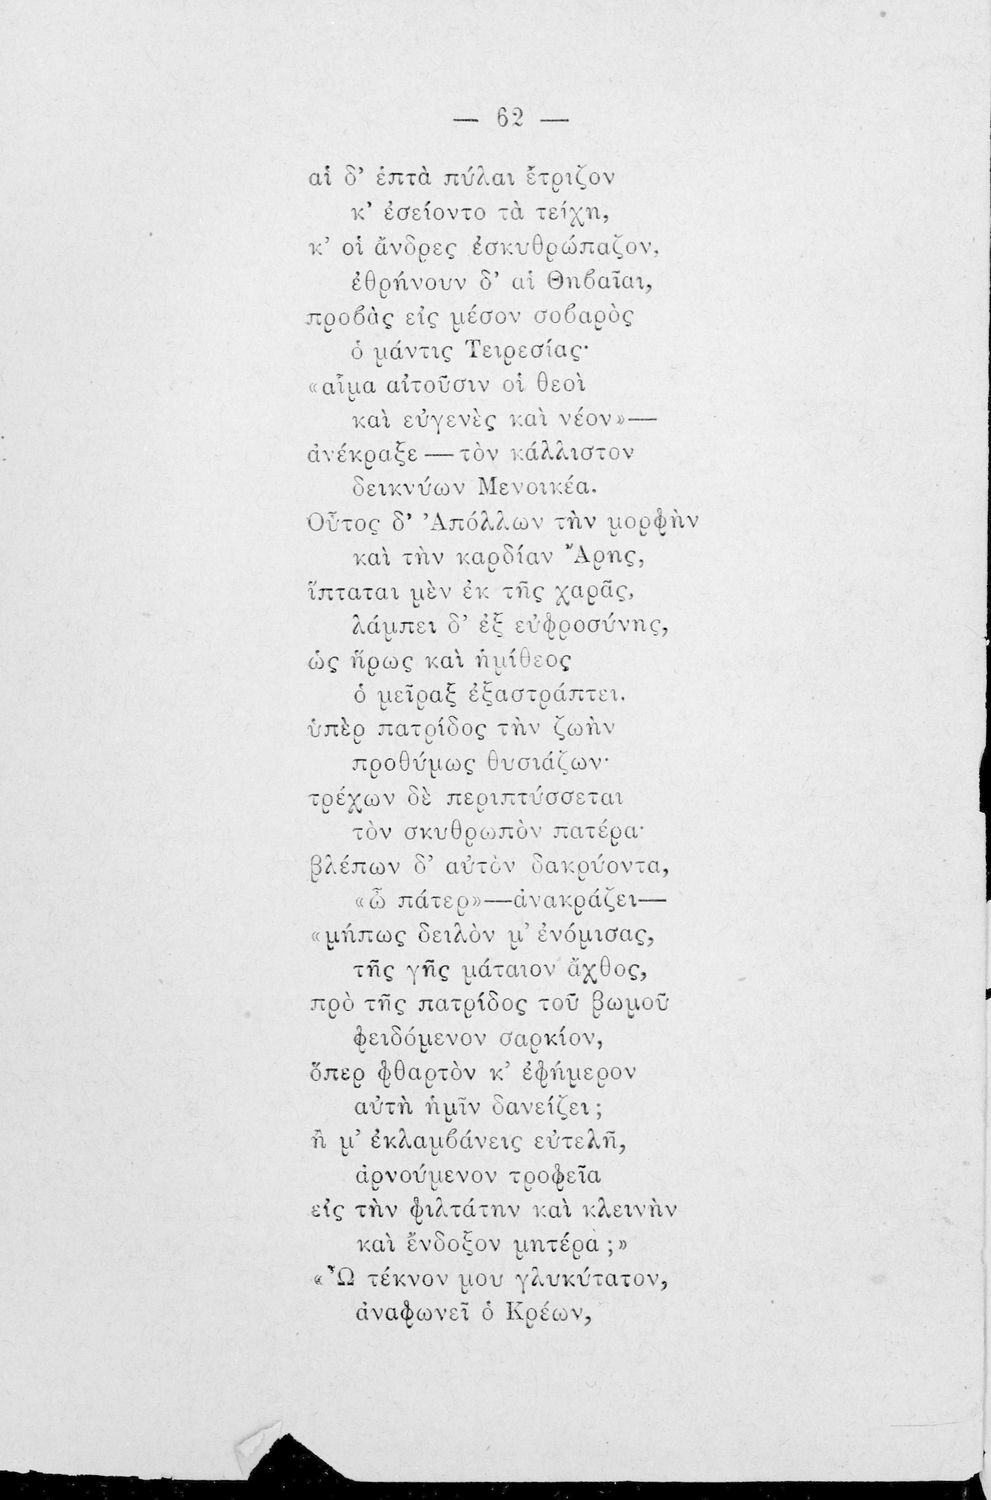 — 62 —
αἱ δ’ ἑπτὰ πύλαι ἔτριζον
κ’ ἐσείοντο τὰ τείχη,
κ’ οἱ ἄνδρες ἐσκυθρώπαζον,
ἐθρήνουν δ’ αἱ Θηβαῖαι,
προβὰς εἰς μέσον σοβαρὸς
ὁ μάντις Τειρεσίας·
«αἷμα αἰτοῦσιν οἱ θεοὶ
καὶ εὐγενὲς καὶ νέον»—
ἀνέκραξε — τὸν κάλλιστον
δεικνύων Μενοικέα.
Οὗτος δ’ Ἀπόλλων τὴν μορφὴν
καὶ τὴν καρδίαν Ἄρης,
ἵπταται μὲν ἐκ τῆς χαρᾶς,
λάμπει δ’ ἐξ εὐφροσύνης,
ὡς ἥρως καὶ ἡμίθεος
ὁ μεῖραξ ἐξαστράπτει.
ὑπὲρ πατρίδος τὴν ζωὴν
προθύμως θυσιάζων·
τρέχων δὲ περιπτύσσεται
τὸν σκυθρωπὸν πατέρα·
βλέπων δ’ αὐτὸν δακρύοντα,
«ὦ πάτερ»—ἀνακράζει—
«μήπως δειλὸν μ’ ἐνόμισας,
τῆς γῆς μάταιον ἄχθος,
πρὸ τῆς πατρίδος τοῦ βωμοῦ
φειδόμενον σαρκίον,
ὅπερ φθαρτὸν κ’ ἐφήμερον
αὐτὴ ἡμῖν δανείζει;
ἢ μ’ ἐκλαμβάνεις εὐτελῆ,
ἀρνούμενον τροφεῖα
εἰς τὴν φιλτάτην καὶ κλεινὴν
καὶ ἔνδοξον μητέρα;»
«Ὦ τέκνον μου γλυκύτατον,
ἀναφωνεῖ ὁ Κρέων,